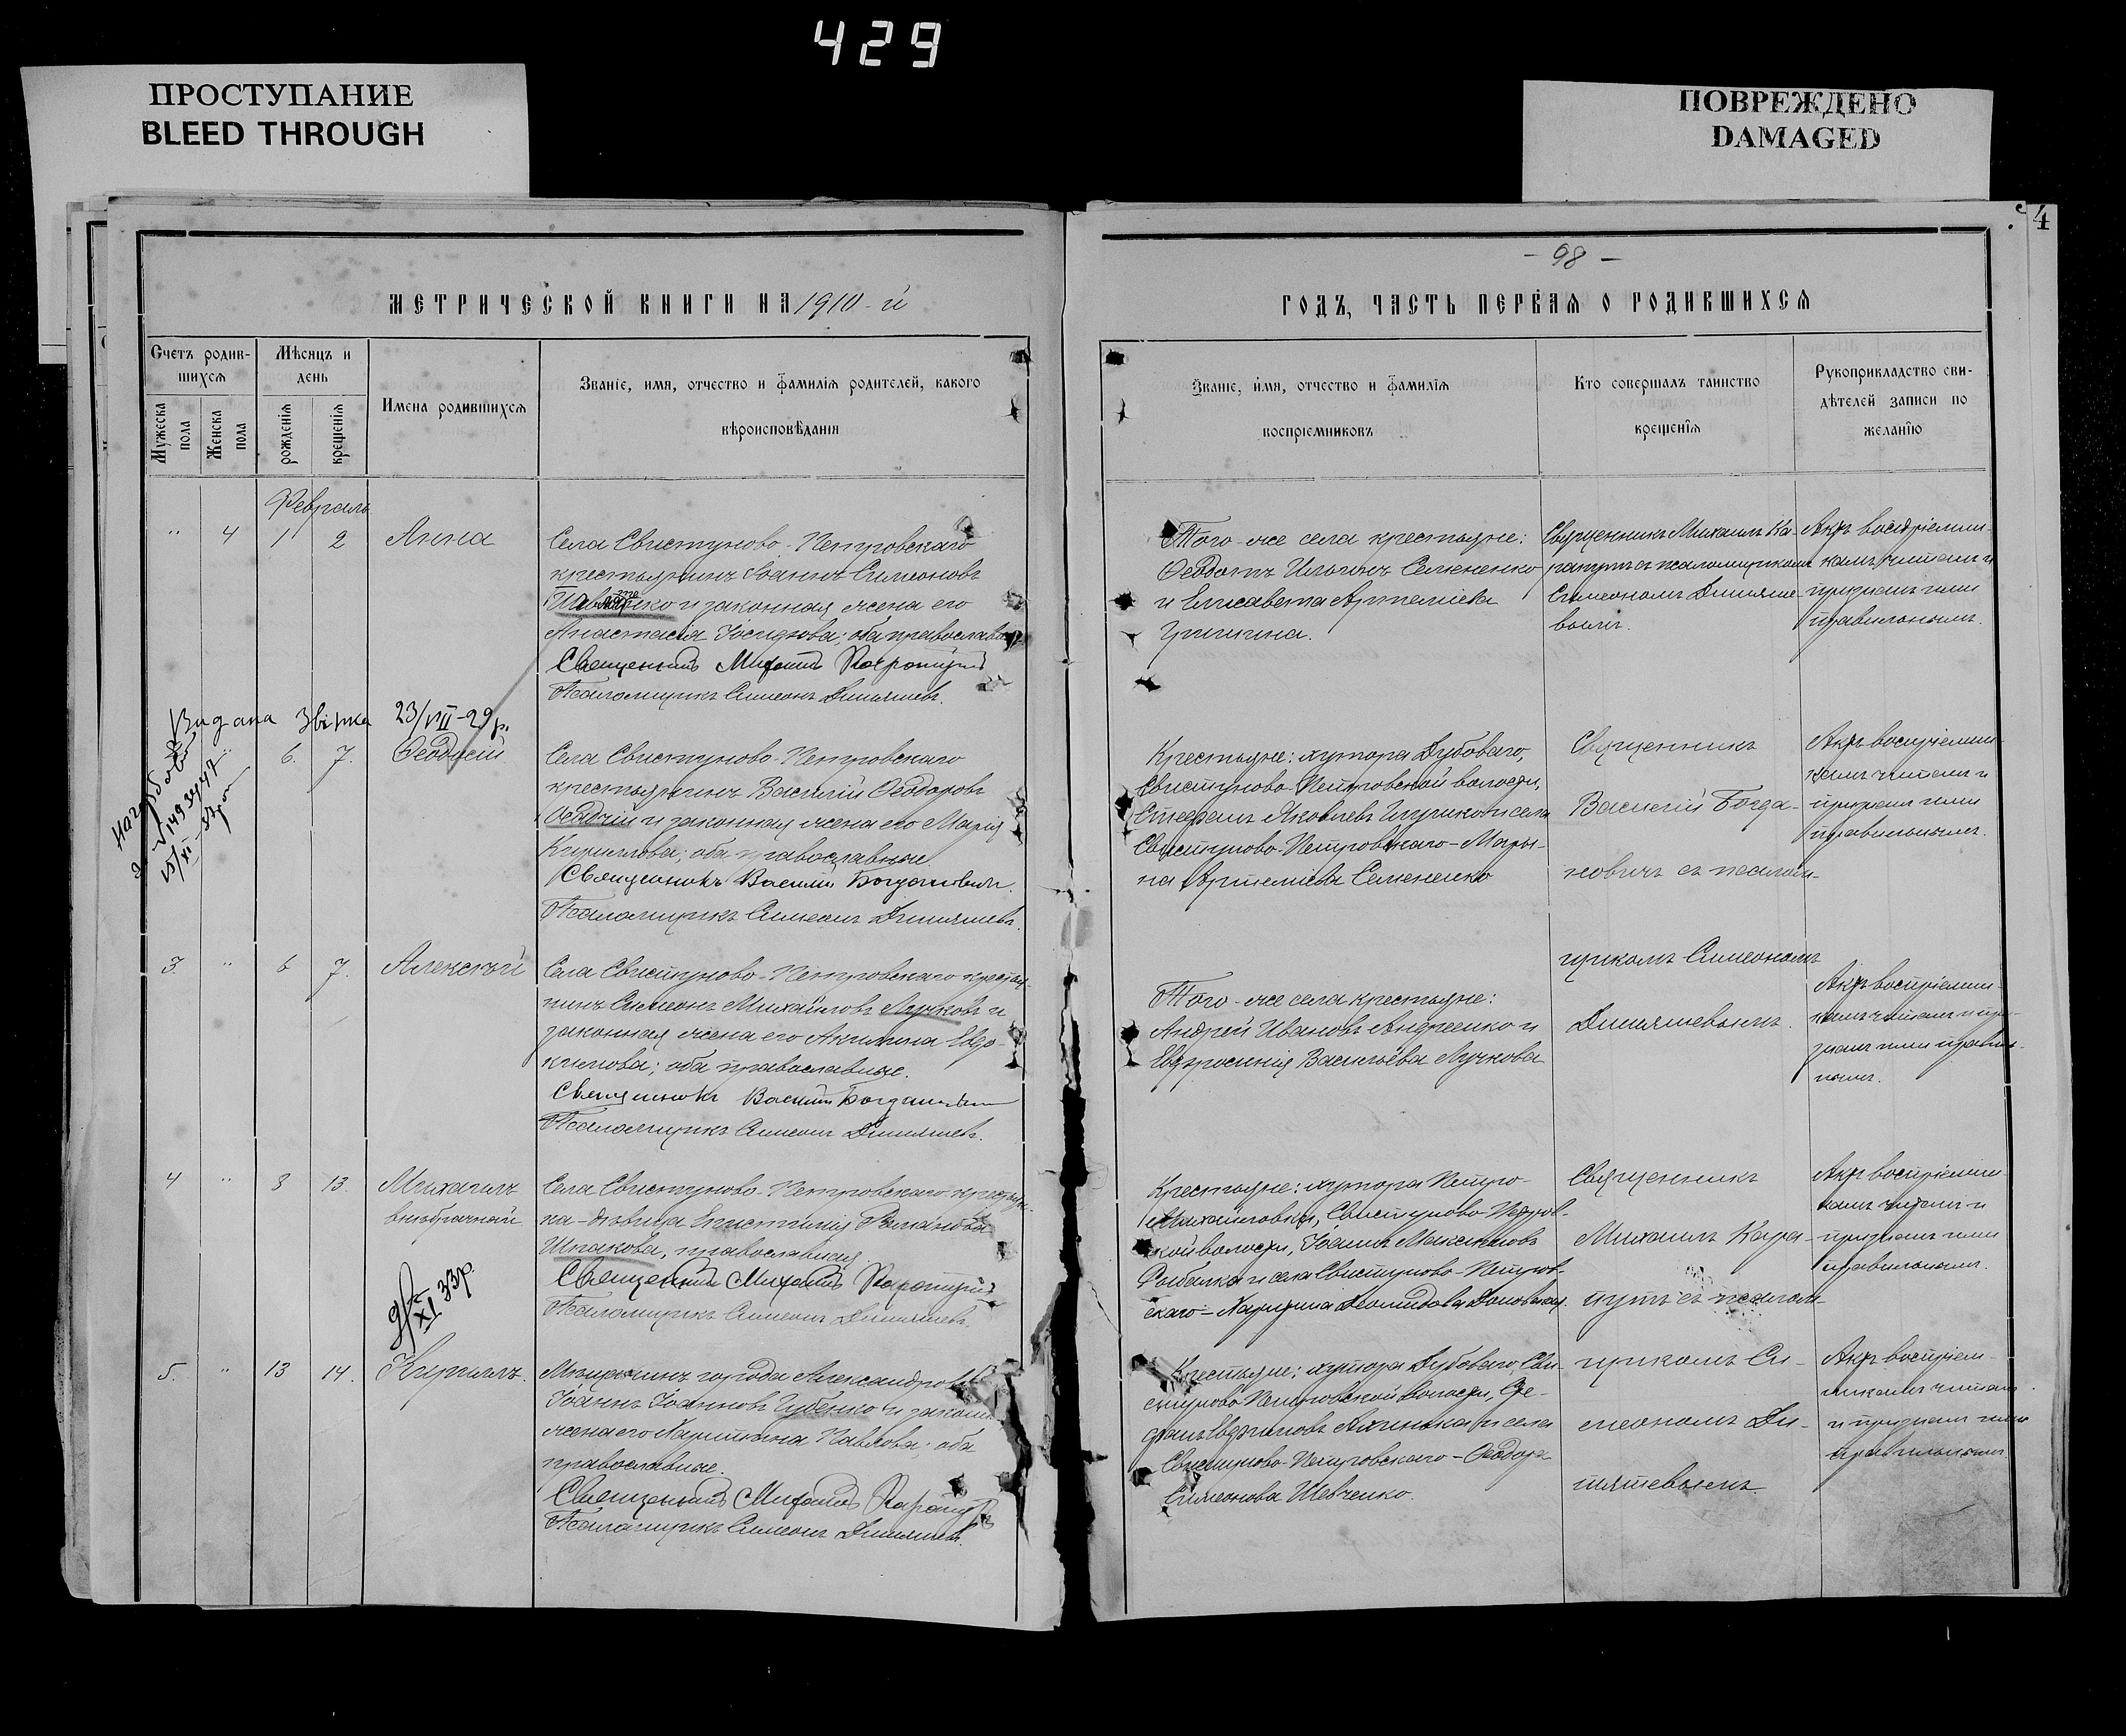 429
ПРОСТУПАНИЕ
BLEED THROUGH
ПОВРЕЖДЕНО
DAMAGED
4
- 98 -
МЕТРИЧЕСКОЙ КНИГИ НА 1910-й
ГОДЪ, ЧАСТЬ ПЕРВАЯ О РОДИВШИХСЯ
Счетъ родив-
шихся
Мѣсяцъ и
день
Имена родившихся
Званіе, имя, отчество и фамилія родителей, какого
вѣроисповѣданія
Мужеска
пола
Женска
пола
рожденія
крещенія
Званіе, имя, отчество и фамилія
воспріемниковъ
Кто совершалъ таинство
крещенія
Рукоприкладство сви-
дѣтелей записи по
желанію
Февраль
" 4 1 2 Анна
Села Свистуново-Петровскаго
крестьянинъ Іоаннъ Симеоновъ
и законная жена его
Анастасія Іосифова; оба православные
Священникъ Михаилъ
Псаломщикъ Симеонъ
Того-же села крестьяне:
Феодотъ Ильинъ Семененко
и Елисавета Артеміева
Гришина.
Священникъ Михаилъ Ка-
рапутъ съ псаломщикомъ
Симеономъ
вымъ.
Актъ воспріемни-
камъ читанъ и
признанъ ими
правильнымъ.
Видана Звірка 23/VII-29р.
15/XI-33р
" 6. 7. Феодосій
Села Свистуново-Петровскаго
крестьянинъ Василій Феодоровъ
и законная жена его Марія
Кириллова; оба православные.
Священникъ Василій Богдановичъ.
Псаломщикъ Симеонъ
Крестьяне: хутора Дубоваго,
Свистуново-Петровской волости,
Стефанъ Яковлевъ и села
Свистуново-Петровскаго - Мари-
на Артеміева Семененко
Священникъ
Василій Богда-
новичъ съ псалом-
щикомъ Симеономъ
Актъ воспріемни-
камъ читанъ и
признанъ ими
правильнымъ.
3. " 6 7. Алексѣй
Села Свистуново-Петровскаго крестья-
нинъ Симеонъ Михайловъ Лучковъ и
законная жена его Акилина Евдо-
кимова; оба православные.
Священникъ Василій Богдановичъ
Псаломщикъ Симеонъ
Того-же села крестьяне:
Андрей Ивановъ Андреенко и
Евфросинія Васильева Лучкова
Актъ воспріемни-
камъ читанъ и при-
знанъ ими правиль-
нымъ.
4 " 8 13. Михаилъ
внѣбрачный
Села Свистуново-Петровскаго крестьян-
ка-дѣвица Романова
Шпакова, православная
Священникъ Михаилъ
Псаломщикъ Симеонъ
XI 33р.
Крестьяне: хутора Петро-
Михайловки, Свистуново-Петров-
ской волости, Іоаннъ Максимовъ
Рыбалка и села Свистуново-Петров-
скаго - Харитина Леонидова
Священникъ
Михаилъ Кара-
путъ съ псалом-
щикомъ Си-
меономъ
Актъ воспріемни-
камъ читанъ и
признанъ ими
правильнымъ.
5. " 13 14. Кириллъ.
Мѣщанинъ города Александровска
Іоаннъ Іоанновъ Губенко и законная
жена его Харитина Павлова; оба
православные.
Священникъ Михаилъ
Псаломщикъ Симеонъ
Крестьяне: хутора Дубоваго, Сви-
стуново-Петровской волости, Сте-
фанъ и села
Свистуново-Петровскаго - Феодора
Симеонова Шевченко.
Актъ воспріем-
никамъ читанъ
и признанъ ими
правильнымъ